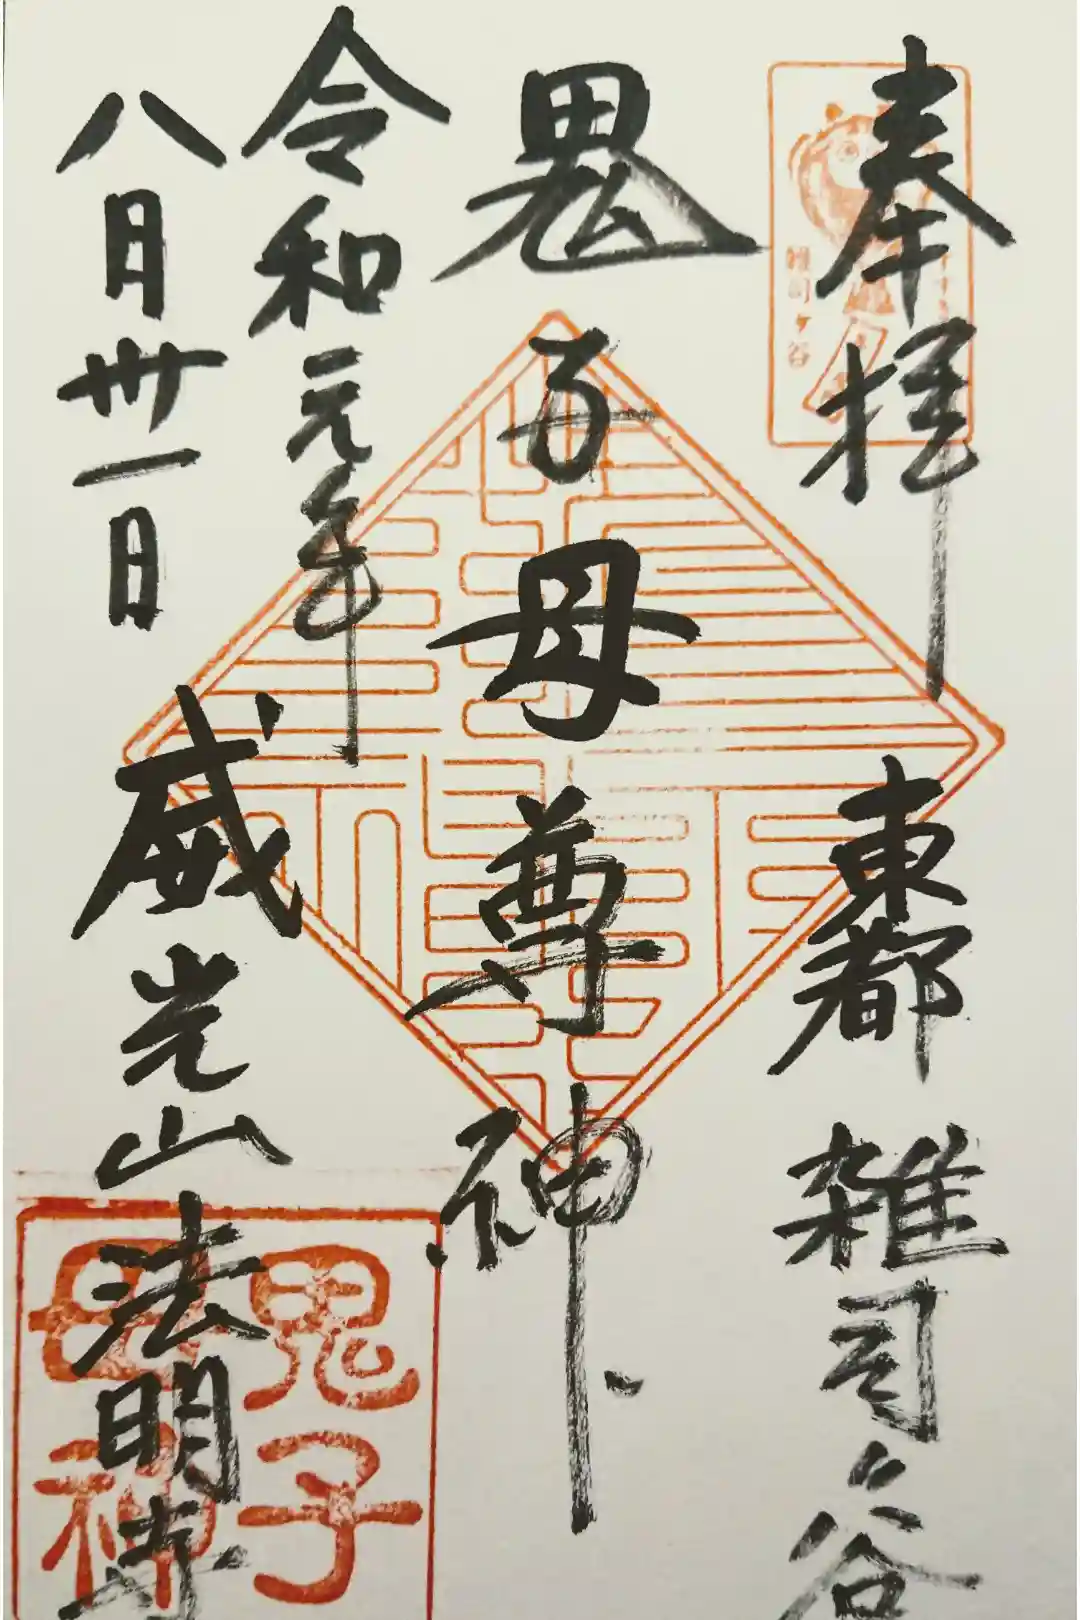 奉拝
東都
雑司ヶ谷
鬼子母尊神
令和元年
八月卅一日
威光山
法明寺
雑司ヶ谷
鬼子
母神